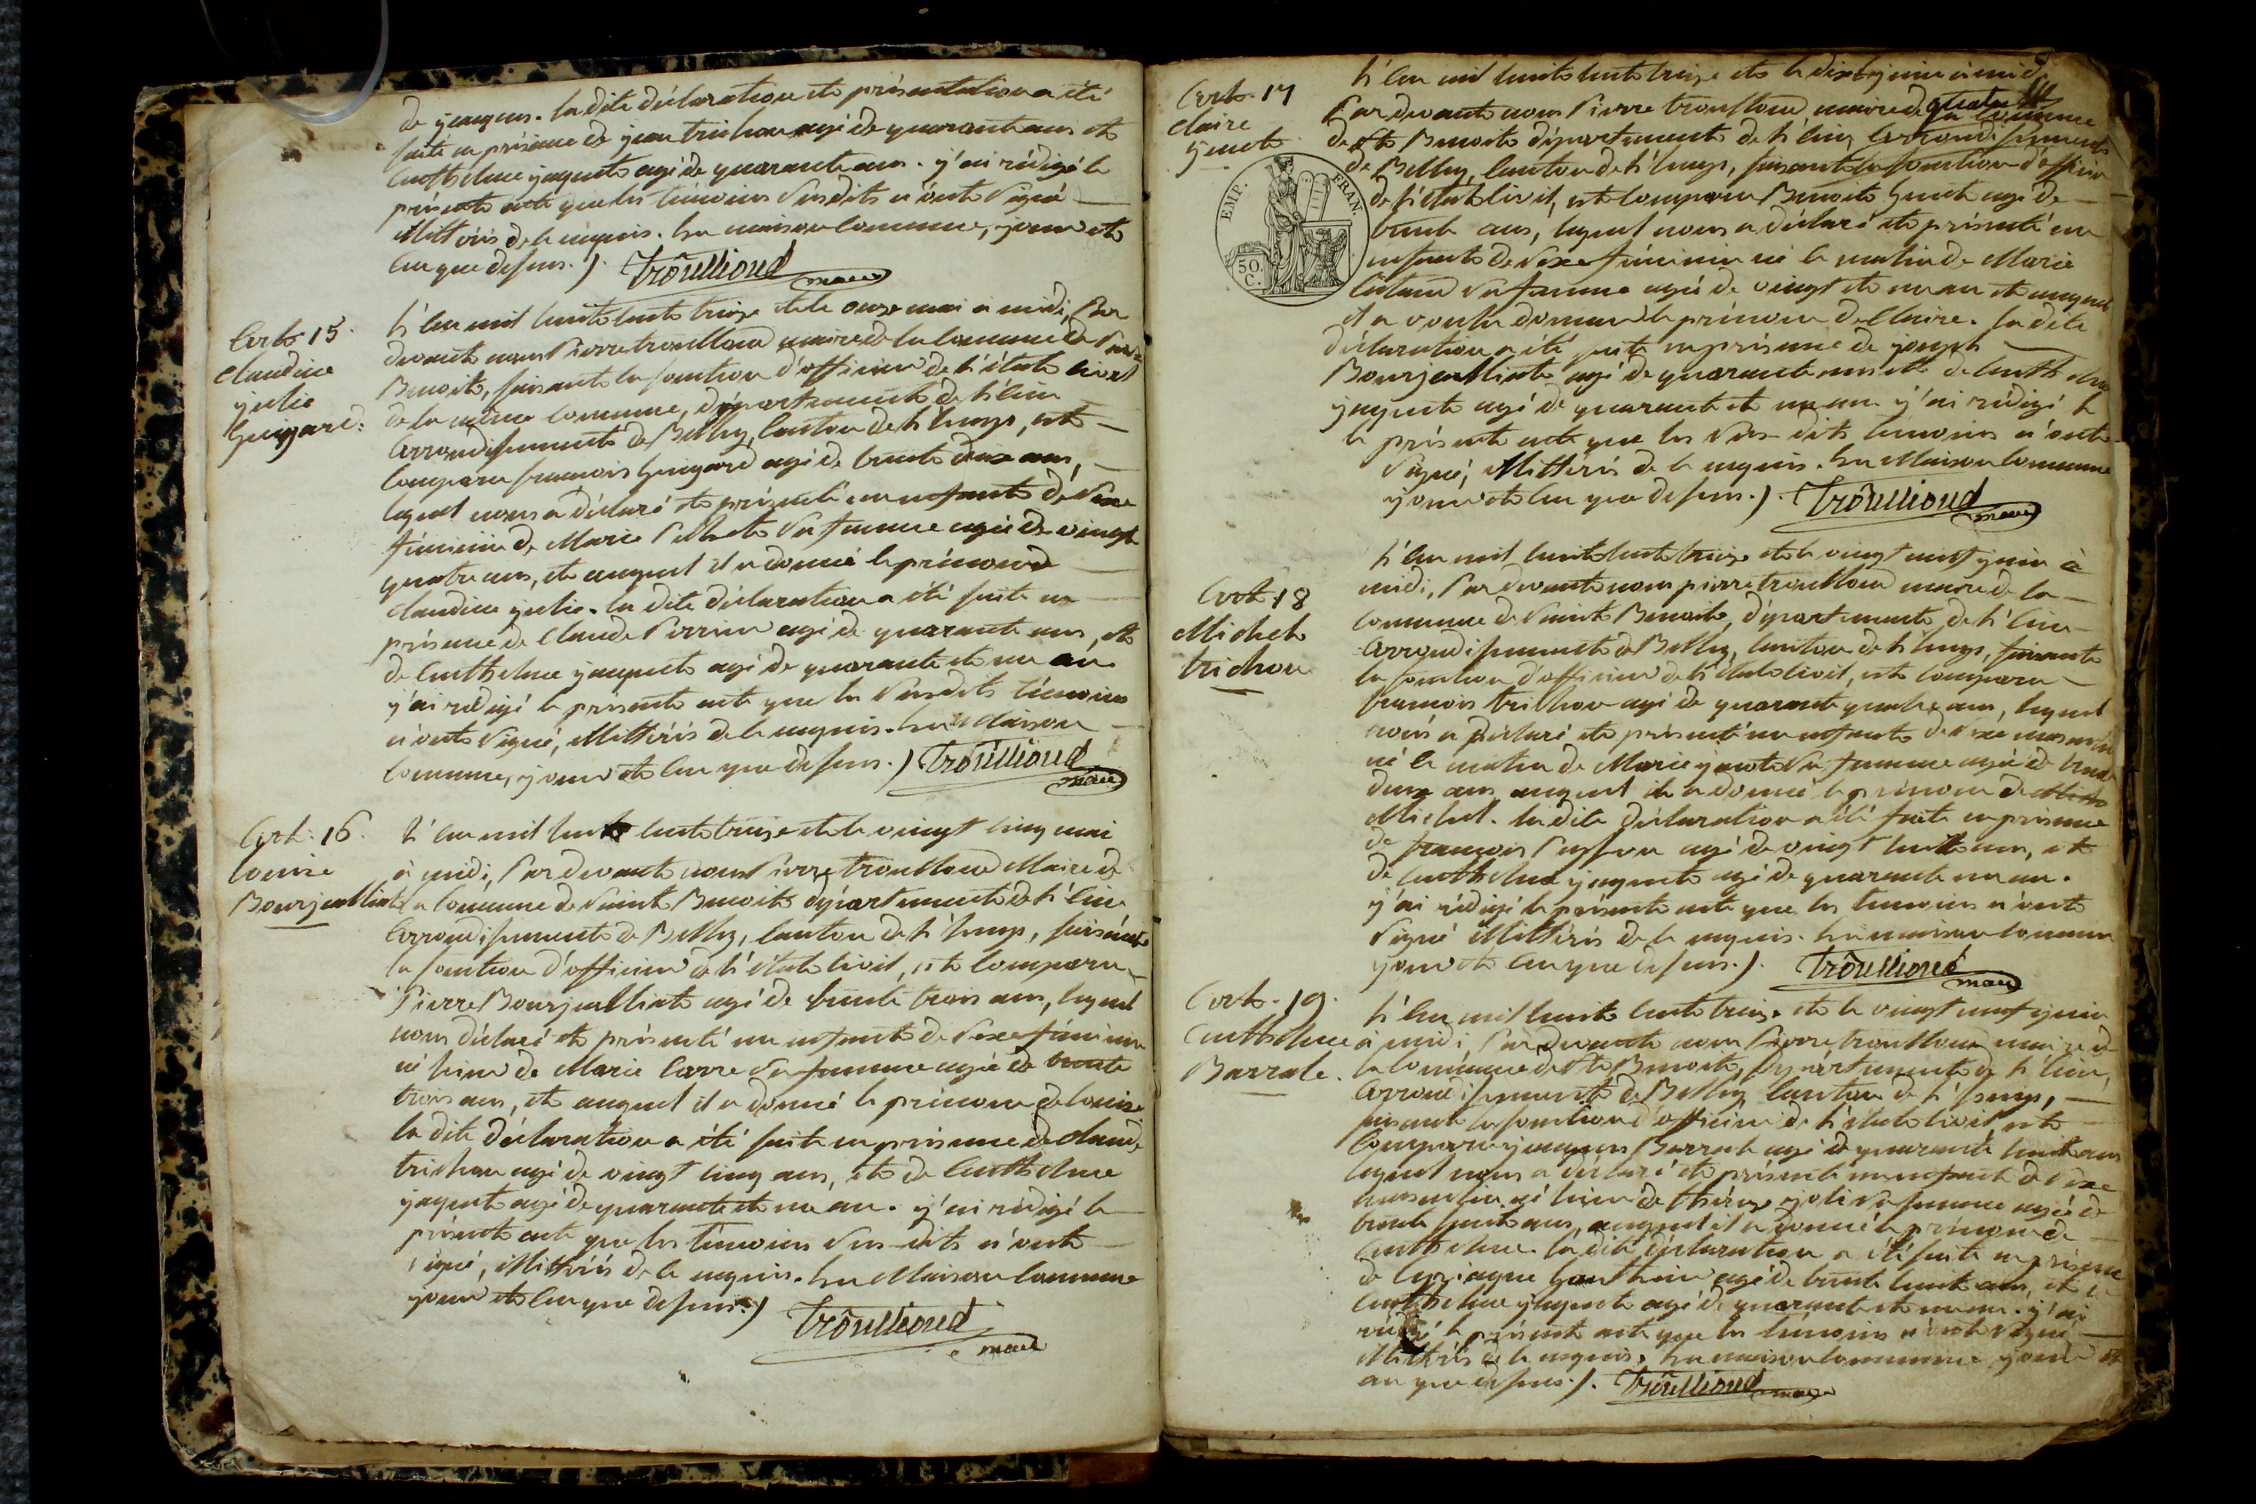 de jacques. la dite déclaration et présentation a été
faite en présence de jean trichon agé de quarante ans et
Anthelme jaquet agé de quarante ans. j'ai rédigé le
présent acte que les témoins susdits n'ont signé
illittérés de le requis. En maison commune, jour et
an que dessus. /. Troullioud maire
Art. 15.
claudine
julie
Guigard.
L'an mil huit cent treize et le onze mai à midi, Par
devant nous Pierre troullioud maire de la commune de Saint
Benoit, faisant la fonction d'officier de l'état civil
de la même commune, département de l'ain
Arrondissement de Belley, canton de l'huys, est
comparu françois Guigard agé de trente deux ans,
lequel nous a déclaré et présenté un enfant de sexe
féminin de Marie sa femme agée de vingt
quatre ans, et auquel il a donné le prénom de
claudine julie. la dite déclaration a été faite en
présence de claude Perrin agé de quarante ans, et
de Anthelme jaquet agé de quarante et un an.
j'ai rédigé le présent acte que les susdits témoins
n'ont signé, illittérés de le requis. En Maison
commune, jour et an que dessus. /. Troullioud
maire
Art. 16.
Louise
Bourjailliat
L'an mil huit cent treize et le vingt cinq mai
à midi, Par devant nous Pierre troullioud Maire de
la commune de Saint Benoit département de l'ain
Arrondissement de Belley, canton de l'huys, faisant
la fonction d'officier de l'état civil, est comparu
Pierre Bourjailliat agé de trente trois ans, lequel
nous déclaré et présenté un enfant de sexe féminin
né hier de Marie Carre sa femme agée de trente
trois ans, et auquel il a donné le prénom de Louise
la dite déclaration a été faite en présence de claude
trichon agé de vingt cinq ans, et de Anthelme
jaquet agé de quarante et un an. j'ai rédigé le
présent acte que les témoins sus-dits n'ont
signé, illittérés de le requis. En Maison commune
jour et an que dessus. /
Troullioud
maire
Art. 17
Claire
Genet
EMP. FRAN.
50.
C.
L'an mil huit cent treize et le dix juin à midi
Par devant nous Pierre troullioud maire de la commune
de St Benoit département de l'ain Arrondissement
de Belley, canton de l'huys, faisant la fonction d'officier
de l'état civil, est comparu Benoit Genet agé de
trente ans, lequel nous a déclaré et présenté un
enfant de sexe féminin né le matin de Marie
sa femme agée de vingt et un an et auquel
il a voulu donner le prénom de Claire. la dite
déclaration a été faite en présence de joseph
Bourjailliat agé de quarante ans et de Anthelme
jaquet agé de quarante et un an. j'ai rédigé le
le présent acte que les sus-dits témoins n'ont
signé, illittérés de le requis. En Maison commune
jour et an que dessus. /. Troullioud
maire
Art. 18
Michel
trichon
L'an mil huit cent treize et le vingt neuf juin à
midi, Par devant nous pierre troullioud maire de la
commune de Saint Benoit, département de l'ain
Arrondissement de Belley, canton de l'huys, faisant
la fonction d'officier de l'état civil, est comparu
françois trichon agé de quarante quatre ans, lequel
nous a déclaré et présenté un enfant de sexe masculin
né le matin de Marie sa femme agée de trente
deux ans auquel il a donné le prénom de
Michel. la dite déclaration a été faite en présence
de françois agé de vingt huit ans, et
de Anthelme jaquet agé de quarante un an.
j'ai rédigé le présent acte que les témoins n'ont
signé illittérés de le requis. En maison commune
jour et an que dessus. /. Troullioud
maire
Art. 19.
Anthelme
Barrale.
L'an mil huit cent treize et le vingt neuf juin
à midi Par devant nous Pierre troullioud maire de
la commune de St Benoit, département de l'ain,
Arrondissement de Belley canton de l'huys,
faisant la fonction d'officier de l'état civil, est
comparu jacques Barrale agé de quarante huit ans
lequel nous a déclaré et présenté un enfant de sexe
masculin né hier de thérèse joli sa femme agée de
trente huit ans, auquel il a donné le prénom de
Anthelme. la dite déclaration a été faite en présence
de agé de trente huit ans, et de
Anthelme jaquet agé de quarante et un an. j'ai
rédigé le présent acte que les témoins n'ont signé
illittérés de le requis. En maison commune jour et
an que dessus. /. Troullioud maire